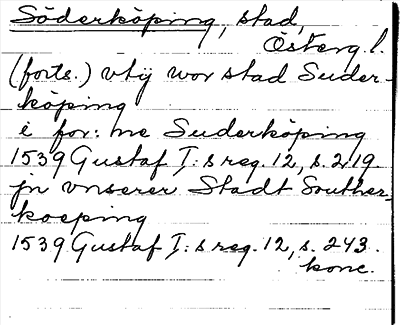 Söderköping, stad,
Österg l.
(forts.) vtij wor stad Suder-
köping
i for: ne Suderköping
1539 Gustaf I:s reg. 12, s. 219.
jn vnserer Stadt Souther-
koeping
1539 Gustaf I:s reg. 12, s. 243.
konc.